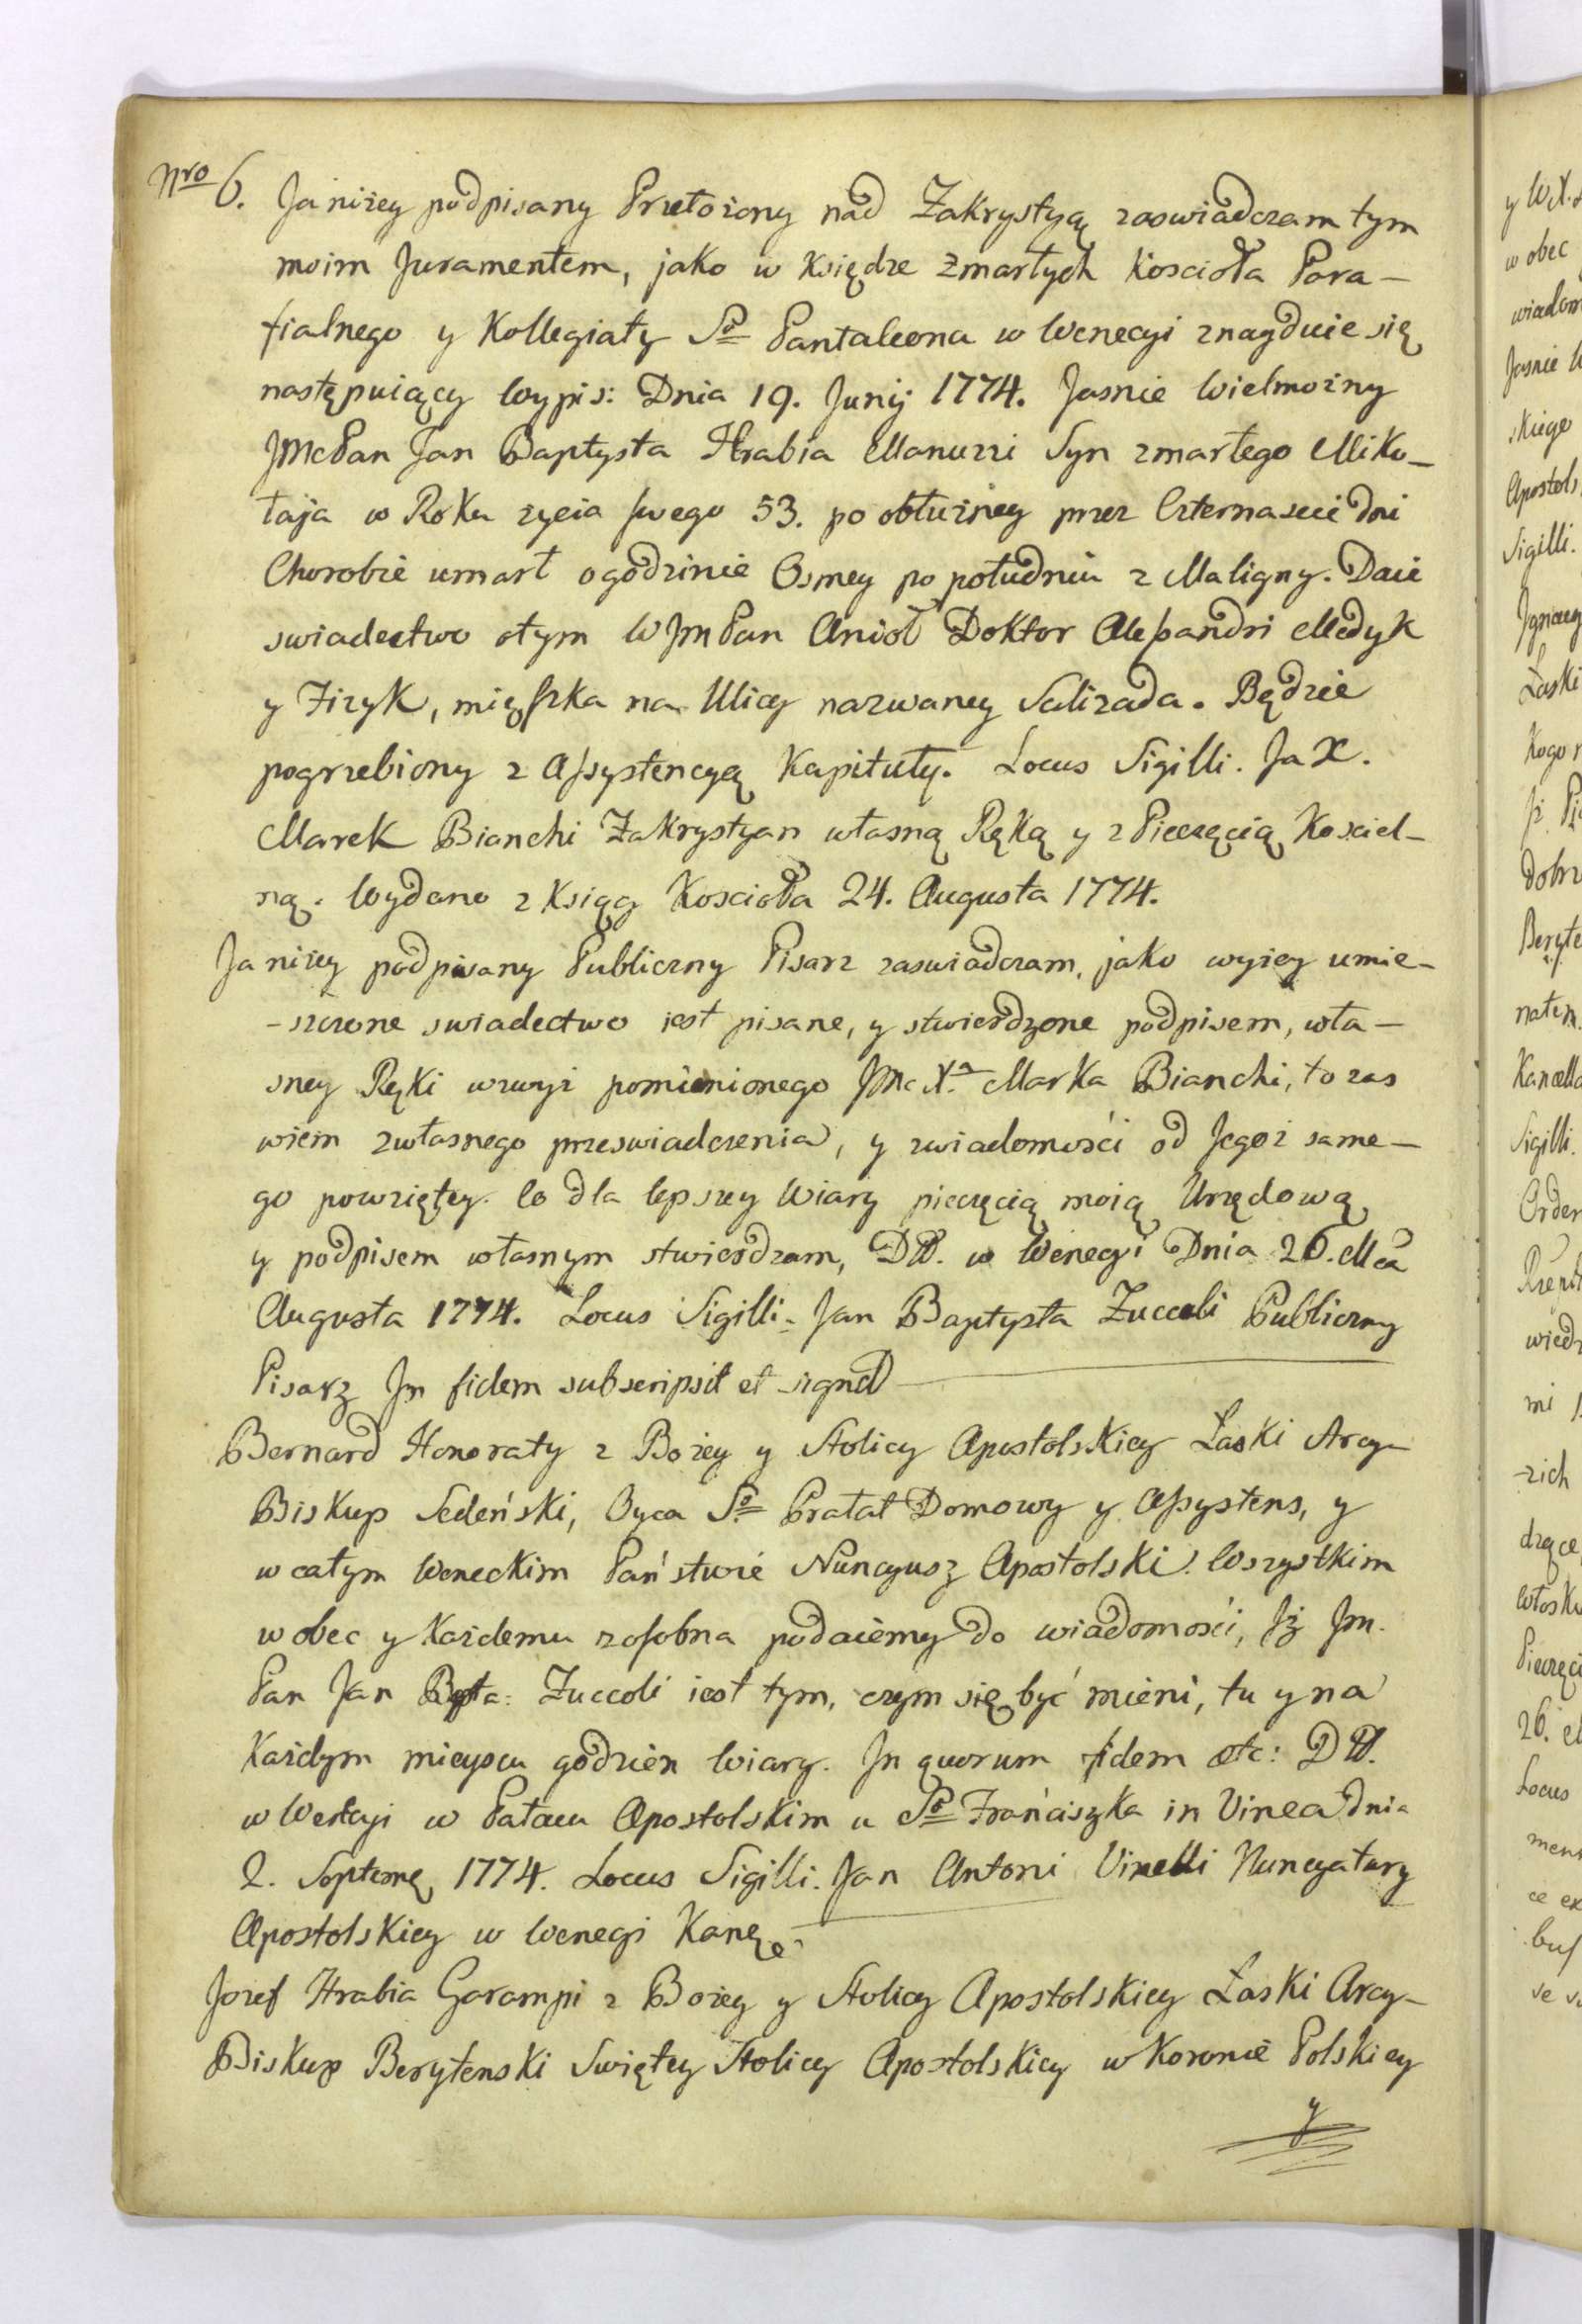 Nro 6. Ja niżey podpisany Przełożony nad Zakrystyą zaswiadczam tym
moim Juramentem, jako w Księdze Zmarłych Koscioła Para-
fialnego y Kollegiaty So Pantaleona w Wenecyi znayduie się
następuiący Wypis: Dnia 19. Junij 1774. Jasnie Wielmożny
JMcPan Jan Baptysta Hrabia Manuzzi Syn zmarłego Miko-
łaja w Roku życia swego 53. po obłużney przez Czternascie dni
Chorobie umarł o godzinie Osmey po południu z Maligny. Daie
swiadectwo otym WJmPan Anioł Doktor Alessandri Medyk
y Fizyk, mięszka na Ulicy nazwaney Salizada. Będzie
pogrzebiony z Assystencyą Kapituły. Locus Sigilli. Ja X.
Marek Bianchi Zakrystyan własną Ręką y z Pieczęcią Kosciel-
ną. Wydano z Ksiąg Koscioła 24. Augusta 1774.
Ja niżey podpisany Publiczny Pisarz zaswiadczam, jako wyżey umie-
-szczone swiadectwo iest pisane, y stwierdzone podpisem, wła-
sney Ręki wzwyż pomienionego JMc Xa Marka Bianchi, to zas
wiem zwłasnego przeswiadczenia, y zwiadomości od Jegoż same-
go powziętey. Co dla lepszey Wiary pieczęcią moią Urzędową
y podpisem własnym stwierdzam, Dtt. w Wenecyi Dnia 26. Mca
Augusta 1774. Locus Sigilli. Jan Baptysta Zuccoli Publiczny
Pisarz In fidem subscripsit et signat
Bernard Honoraty z Bożey y Stolicy Apostolskiey Łaski Arcy-
Biskup Sedeński, Oyca So Prałat Domowy y Assystens, y
w całym Weneckim Państwie Nuncyusz Apostolski. Wszystkim
wobec y Każdemu zosobna podaiemy do wiadomości, Jż Jm.
Pan Jan Bapta: Zuccoli iest tym, czym się być mieni, tu y na
Każdym mieyscu godzien Wiary. In quorum fidem etc: Dtt.
w Wenecyi w Pałacu Apostolskim u So Franciszka in Vinea dnia
2. Septemę 1774. Locus Sigilli. Jan Antoni Vinelli Nuncyatury
Apostolskiey w Wenecyi Kanę
Jozef Hrabia Garampi z Bożey y Stolicy Apostolskiey Łaski Arcy-
Biskup Berytenski Swiętey Stolicy Apostolskiey w Koronie Polskiey
y